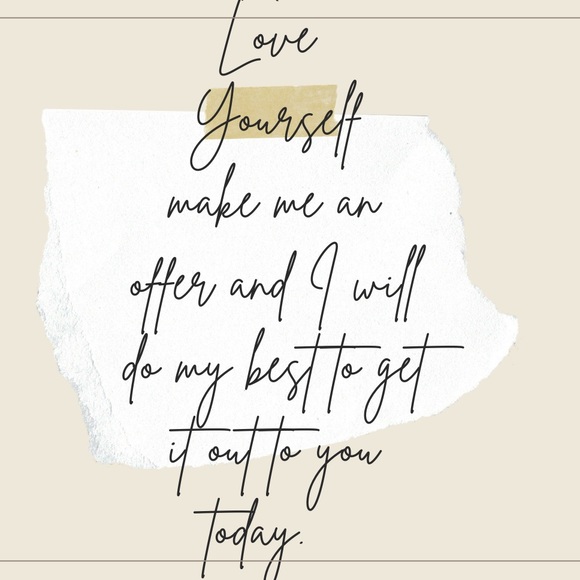 Love
Yourself
make me an
offer and I will
do my best to get
it out to you
today.